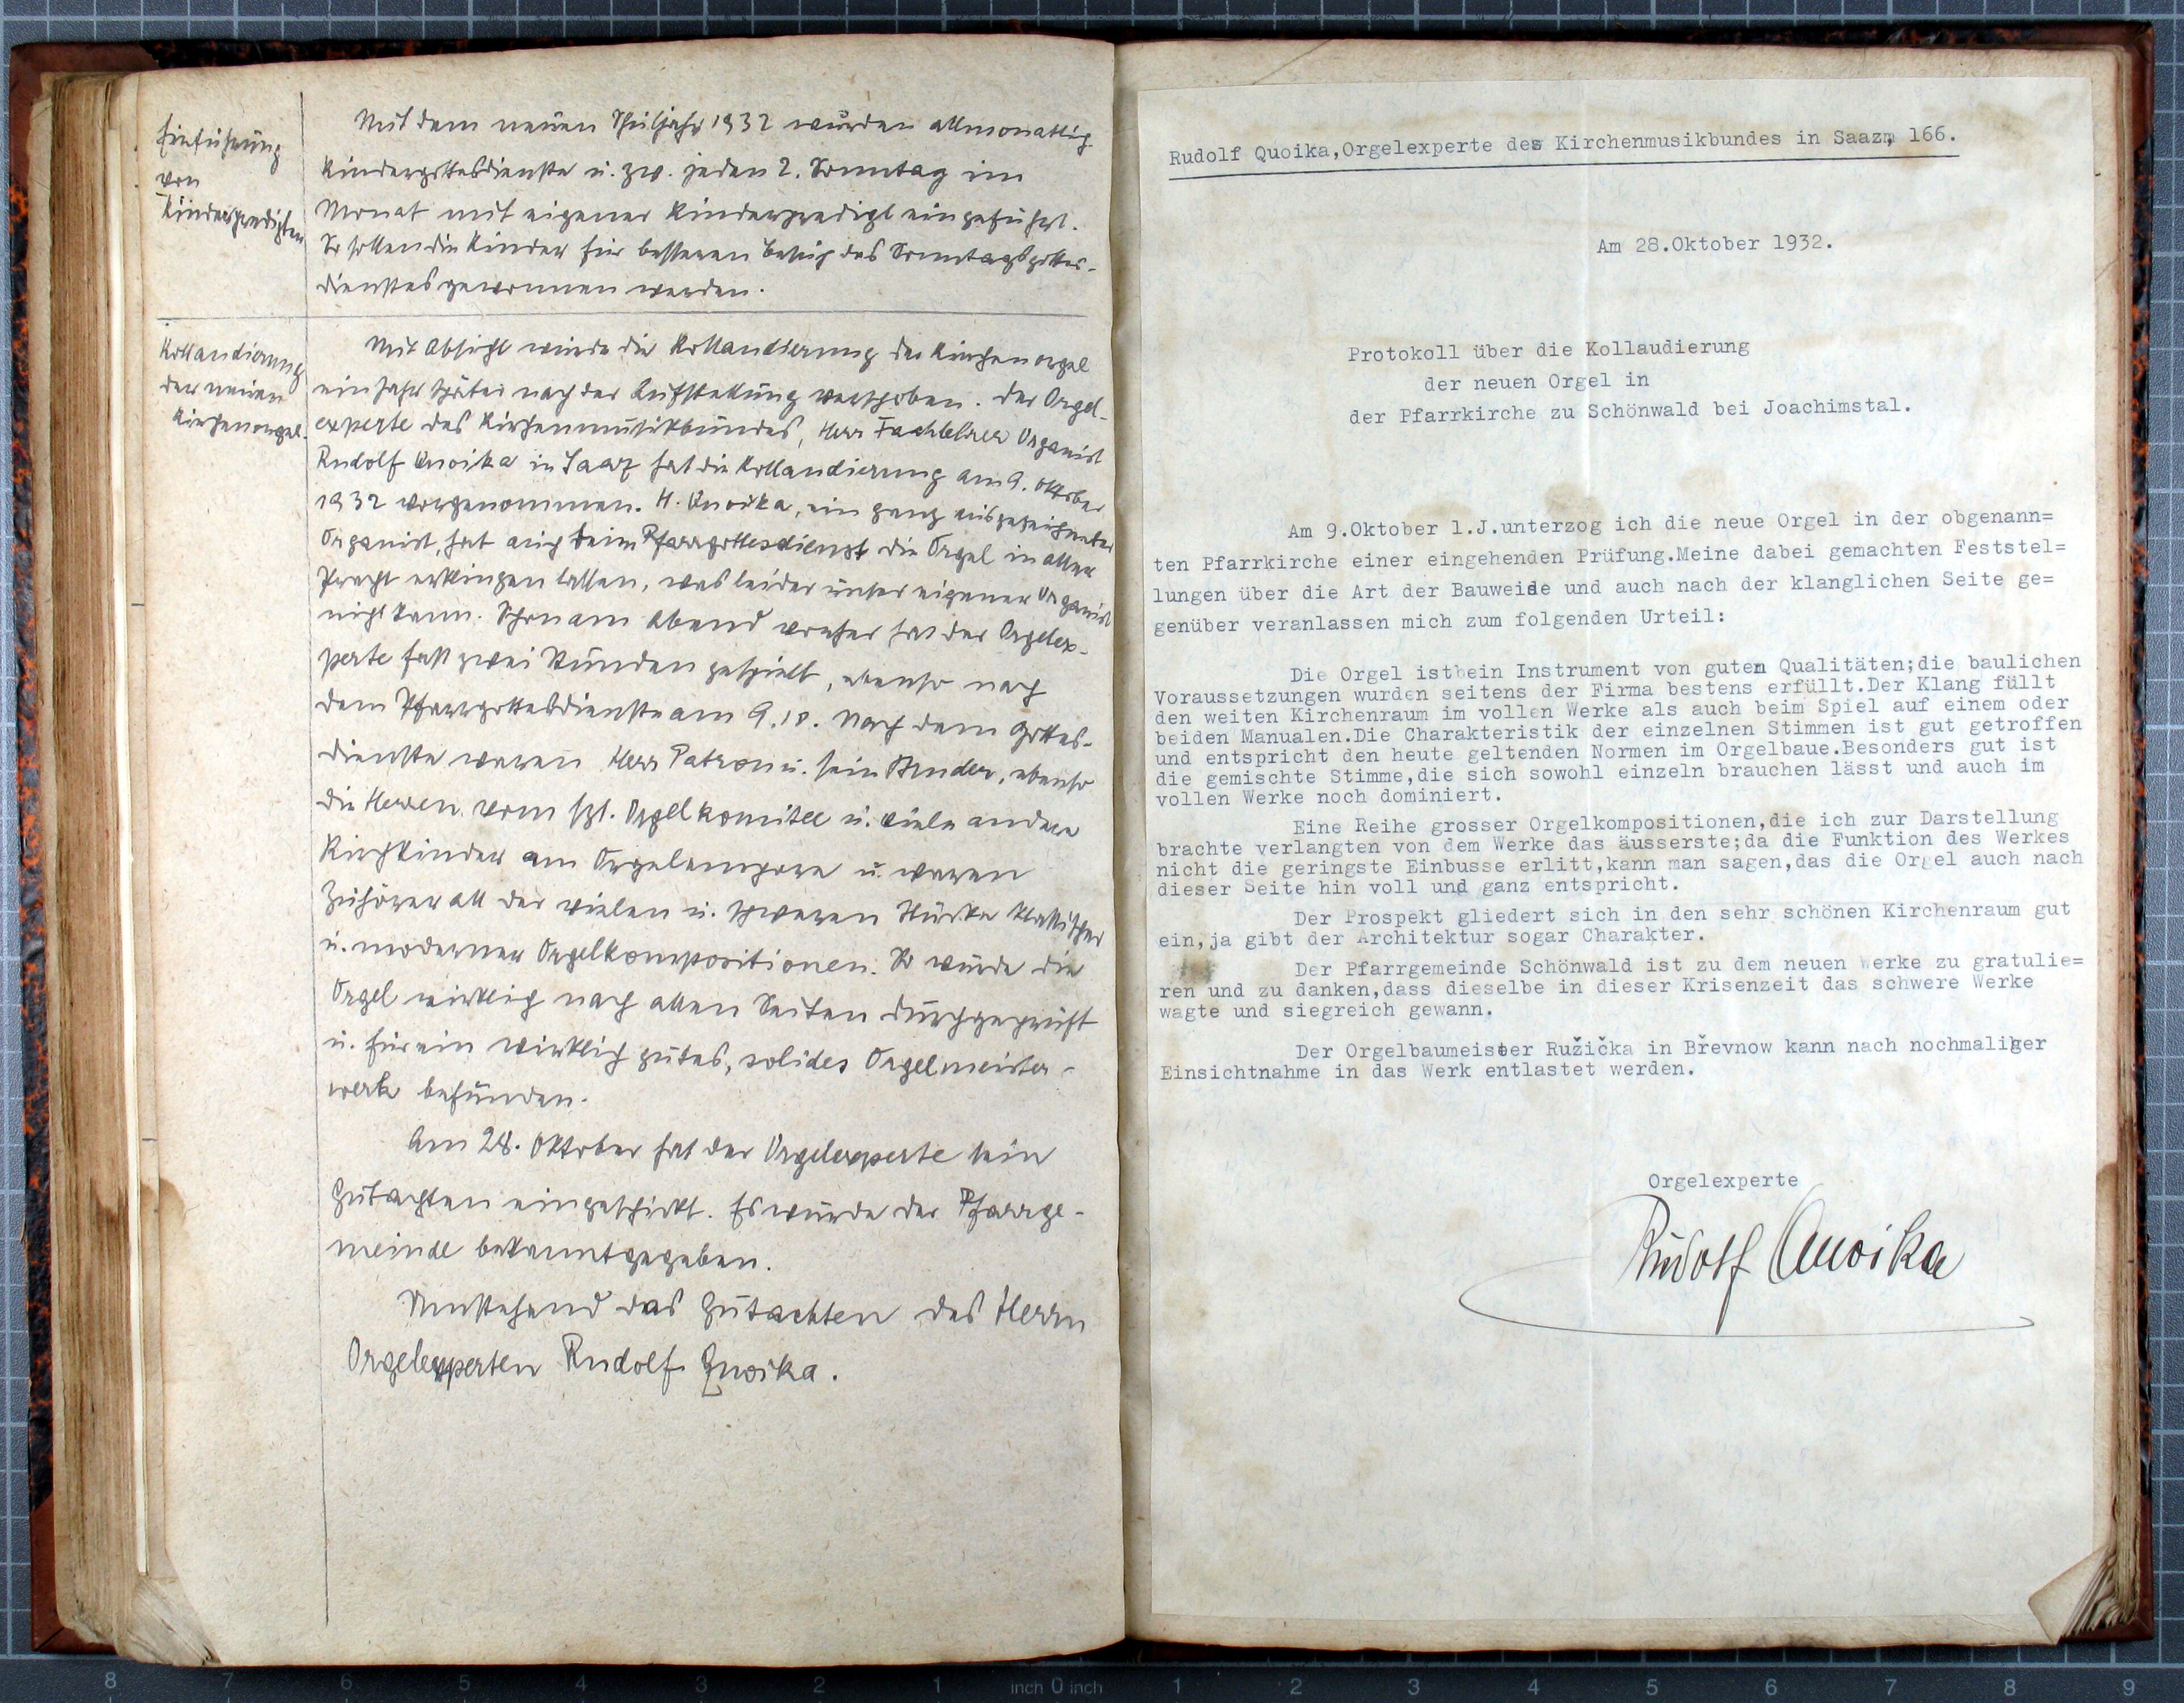 Einführung
von
Kinderpredigten
Mit dem neuen Schuljahr 1932 wurden allmonatlich
Kindergottesdienste u. zw. jeden 2. Sonntag im
Monat mit eigener Kinderpredigt eingeführt.
So sollen die Kinder für besseren Besuch des Sonntagsgottes-
dienstes gewonnen werden.
Kollaudierung
der neuen
Kirchenorgel.
Mit Absicht wurde die Kollaudierung der Kirchenorgel
ein Jahr später nach der Aufstellung verschoben. Der Orgel-
experte des Kirchenmusikbundes, Herr Fachlehrer Organist
Rudolf Quoika in Saaz hat die Kollaudierung am 9. Oktober
1932 vorgenommen. H. Quoika, ein ganz ausgezeichneter
Organist, hat auch beim Pfarrgottesdienst die Orgel in aller
Pracht erklingen lassen, was leider unser eigener Organist
nicht kann. Schon am Abend vorher hat der Orgelex-
perte fast zwei Stunden gespielt, ebenso nach
dem Pfarrgottesdienste am 9.10. Nach dem Gottes-
dienste waren Herr Patron u. sein Bruder, ebenso
die Herren vom Orgelkomitee u. viele andere
Kirchkinder am Orgelempore u. waren
Zuhörer all der vielen u. schweren Stücke klassischer
u. moderner Orgelkompositionen. So wurde die
Orgel wirklich nach allen Seiten durchgeprüft
u. für ein wirklich gutes, solides Orgelmeister-
werk befunden.
Am 28. Oktober hat der Orgelexperte sein
Gutachten eingeschickt. Es wurde der Pfarrge-
meinde bekanntgegeben.
Umstehend das Gutachten des Herrn
Orgelexperten Rudolf Quoika.
Rudolf Quoika,Orgelexperte des Kirchenmusikbundes in Saaz, 166.
Am 28.Oktober 1932.
Protokoll über die Kollaudierung
der neuen Orgel in
der Pfarrkirche zu Schönwald bei Joachimstal.
Am 9.Oktober l.J.unterzog ich die neue Orgel in der obgenann=
ten Pfarrkirche einer eingehenden Prüfung.Meine dabei gemachten Feststel=
lungen über die Art der Bauweise und auch nach der klanglichen Seite ge=
genüber veranlassen mich zum folgenden Urteil:
Die Orgel ist ein Instrument von guten Qualitäten;die baulichen
Voraussetzungen wurden seitens der Firma bestens erfüllt.Der Klang füllt
den weiten Kirchenraum im vollen Werke als auch beim Spiel auf einem oder
beiden Manualen.Die Charakteristik der einzelnen Stimmen ist gut getroffen
und entspricht den heute geltenden Normen im Orgelbaue.Besonders gut ist
die gemischte Stimme,die sich sowohl einzeln brauchen lässt und auch im
vollen Werke noch dominiert.
Eine Reihe grosser Orgelkompositionen,die ich zur Darstellung
brachte verlangten von dem Werke das äusserste;da die Funktion des Werkes
nicht die geringste Einbusse erlitt,kann man sagen,das die Orgel auch nach
dieser Seite hin voll und ganz entspricht.
Der Prospekt gliedert sich in den sehr schönen Kirchenraum gut
ein,ja gibt der Architektur sogar Charakter.
Der Pfarrgemeinde Schönwald ist zu dem neuen Werke zu gratulie=
ren und zu danken,dass dieselbe in dieser Krisenzeit das schwere Werke
wagte und siegreich gewann.
Der Orgelbaumeister Ružička in Břevnow kann nach nochmaliger
Einsichtnahme in das Werk entlastet werden.
Orgelexperte
Rudolf Quoika
8 7 6 5 4 3 2 1 inch 0 inch 1 2 3 4 5 6 7 8 9